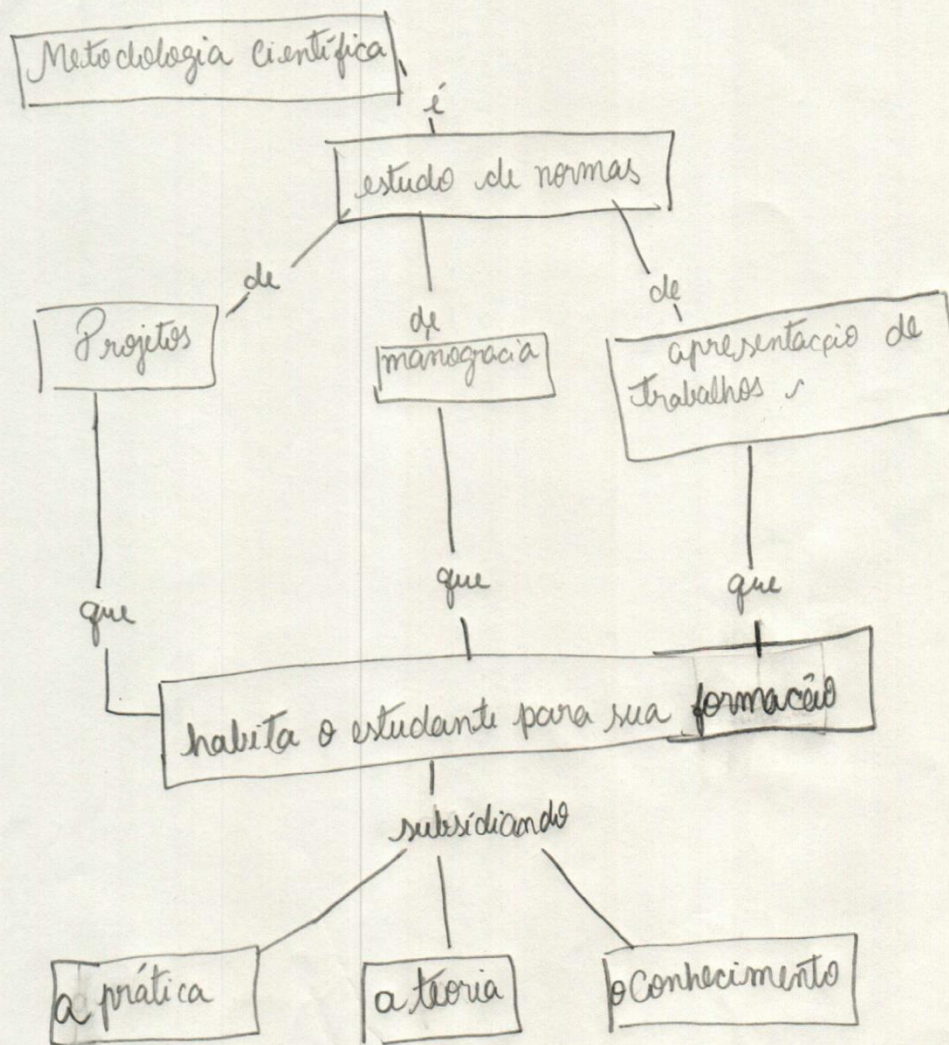 Metodologia Científica
é
estudo de normas
de
de
de
Projetos
manogracia
apresentação de
trabalhos
que
que
que
habita o estudante para sua formação
subsidiando
a prática
a teoria
o conhecimento